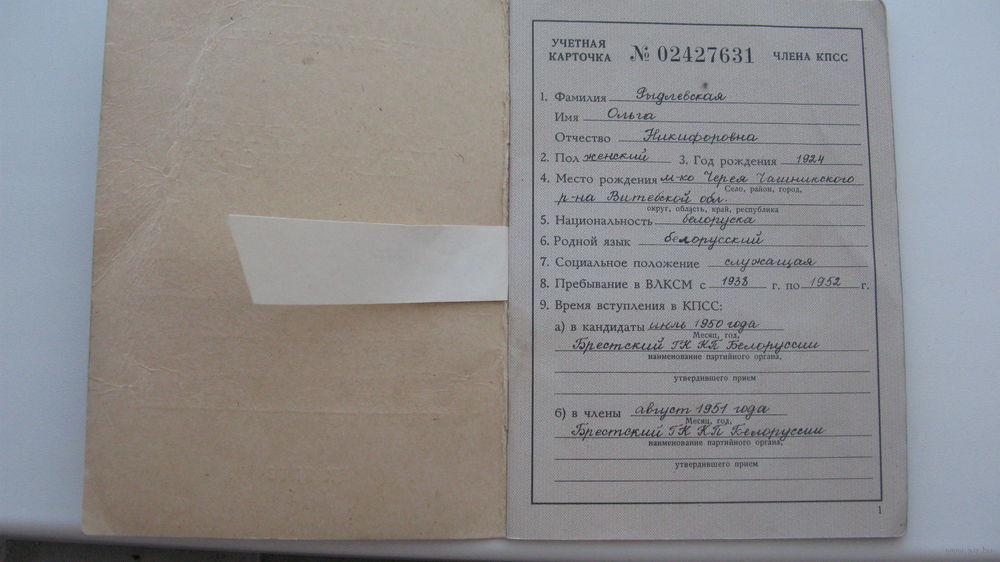 УЧЕТНАЯ
КАРТОЧКА № 02427631 ЧЛЕНА КПСС
1. Фамилия Рыдлевская
Имя Ольга
Отчество Никифоровна
2. Пол женский 3. Год рождения 1924
4. Место рождения м-ко Черея Чашникского
Село, район, город,
р-на Витебской обл.
округ, область, край, республика
5. Национальность белоруска
6. Родной язык белорусский
7. Социальное положение служащая
8. Пребывание в ВЛКСМ с 1938 г. по 1952 г.
9. Время вступления в КПСС:
а) в кандидаты июль 1950 года
Месяц, год,
Брестский ГК КП Белоруссии
наименование партийного органа,
утвердившего прием
б) в члены август 1951 года
Месяц, год,
Брестский ГК КП Белоруссии
наименование партийного органа,
утвердившего прием
1